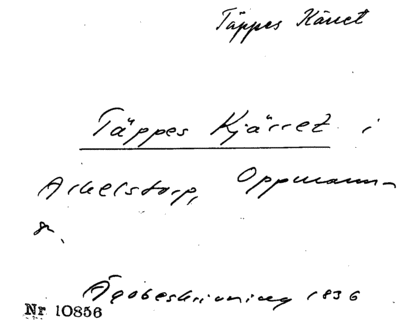 Täppes Kärret
Täppes Kjärret i
Arkelstorp, Oppmann-
a.
Ägobeskrivning 1836
Nr 10856